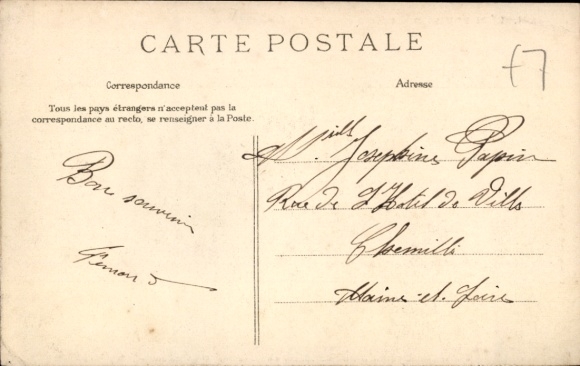 CARTE POSTALE
Correspondance
Adresse
Tous les pays étrangers n'acceptent pas la
correspondance au recto, se renseigner à la Poste.
Bon souvenir
Fernand
Josephine Papin
Rue de L'Hotel de Ville
Chemillé
Maine-et-Loire